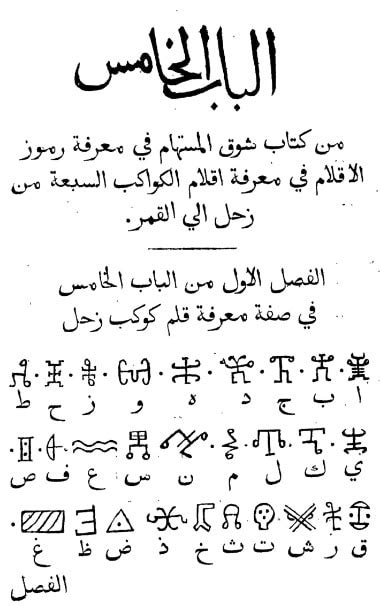 الباب الخامس
من كتاب شوق المستهام في معرفة رموز
الاقلام في معرفة اقلام الكواكب السبعة من
زحل الي القمر.
الفصل الاول من الباب الخامس
في صفة معرفة قلم كوكب زحل
ا ب ج د ه و ز ح ط
ي ك ل م ن س ع ف ص
ق ر ش ت ث خ ذ ض ظ غ
الفصل